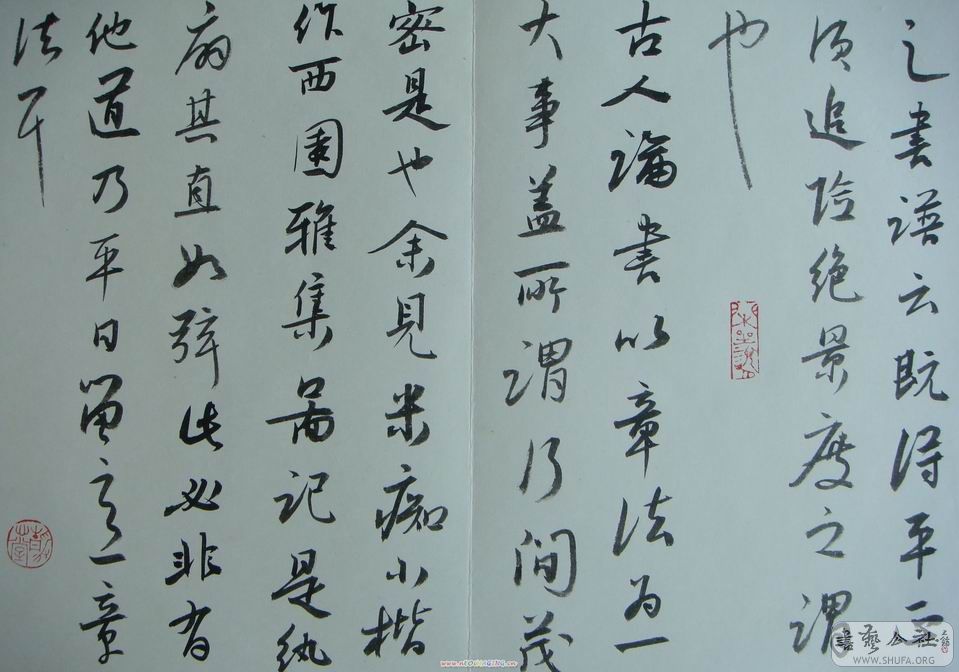 之書譜云既得平正
須追險絕景度之謂
也
古人論書以章法為一
大事蓋所謂行間茂
密是也余見米癡小楷
作西園雅集圖記是紈
扇其直如弦此必非有
他道乃平日留意章
法耳
書藝公社
WWW.SHUFA.ORG